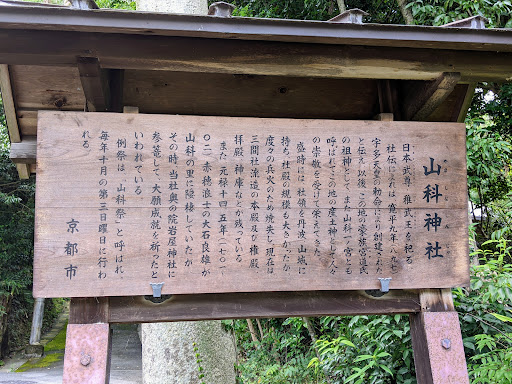 山科神社
やましなじんじゃ
日本武尊、稚武王を祀る。
社伝によれば、寛平九年(八九七)
宇多天皇の勅命により創建された
と伝え、以後、この地の豪族宮道氏
の祖神として、また山科一ノ宮とも
呼ばれてこの地の産土神として人々
の崇敬を受けて栄えてきた。
盛時には、社領を丹波、山城に
持ち、社殿の規模も大きかったが、
度々の兵火のため焼失し、現在は
三間社流造の本殿及び権殿、
拝殿、神庫などが残っている。
また、元禄十四、五年(一七〇一、
〇二)赤穂浪士の大石良雄が
山科の里に隠棲していたが、
その時、当社奥の院岩屋神社に
参篭して、大願成就を祈ったと
いわれている。
例祭は、「山科祭」と呼ばれ、
毎年十月の第三日曜日に行わ
れる。
京都市